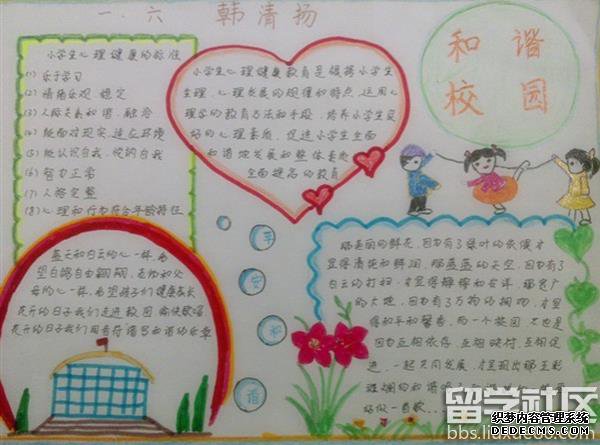 一.六 韩清扬
小学生心理健康的标准
(1) 乐于学习
(2) 情绪乐观、稳定
(3) 人际关系和谐、融洽
(4) 能面对现实、适应环境
(5) 能认识自我、悦纳自我
(6) 智力正常
(7) 人格完整
(8) 心理和行为符合年龄特征
小学生心理健康教育是根据小学生
生理、心理发展的规律和特点,运用心
理学的教育方法和手段,培养小学生良
好的心理素质,促进小学生全面
和谐地发展和整体素质
全面提高的教育
和谐
校园
蓝天和白云的心一样,希
望白鸽自由翱翔,老师和父
母的心一样,希望孩子们健康成长
花开的日子我们走进校园
花开的日子我们用音符谱写和谐的乐章
平
安
和
谐
那美丽的鲜花,因为有了绿叶的依偎才
显得清艳和鲜润,那蓝蓝的天空,因为有了
白云的打扮,才显得静穆和安详,那宽广
的大地,因为有了万物的拥抱,才显
得和平和馨香,而一个校园不也是
因为互相依存、互相映衬、互相促
进、一起共同发展,才呈现出那五彩
斑斓的和谐
好似一首歌...
留学社区
织梦内容管理系统
DEDECMS.COM
bbs.liuxue86.com